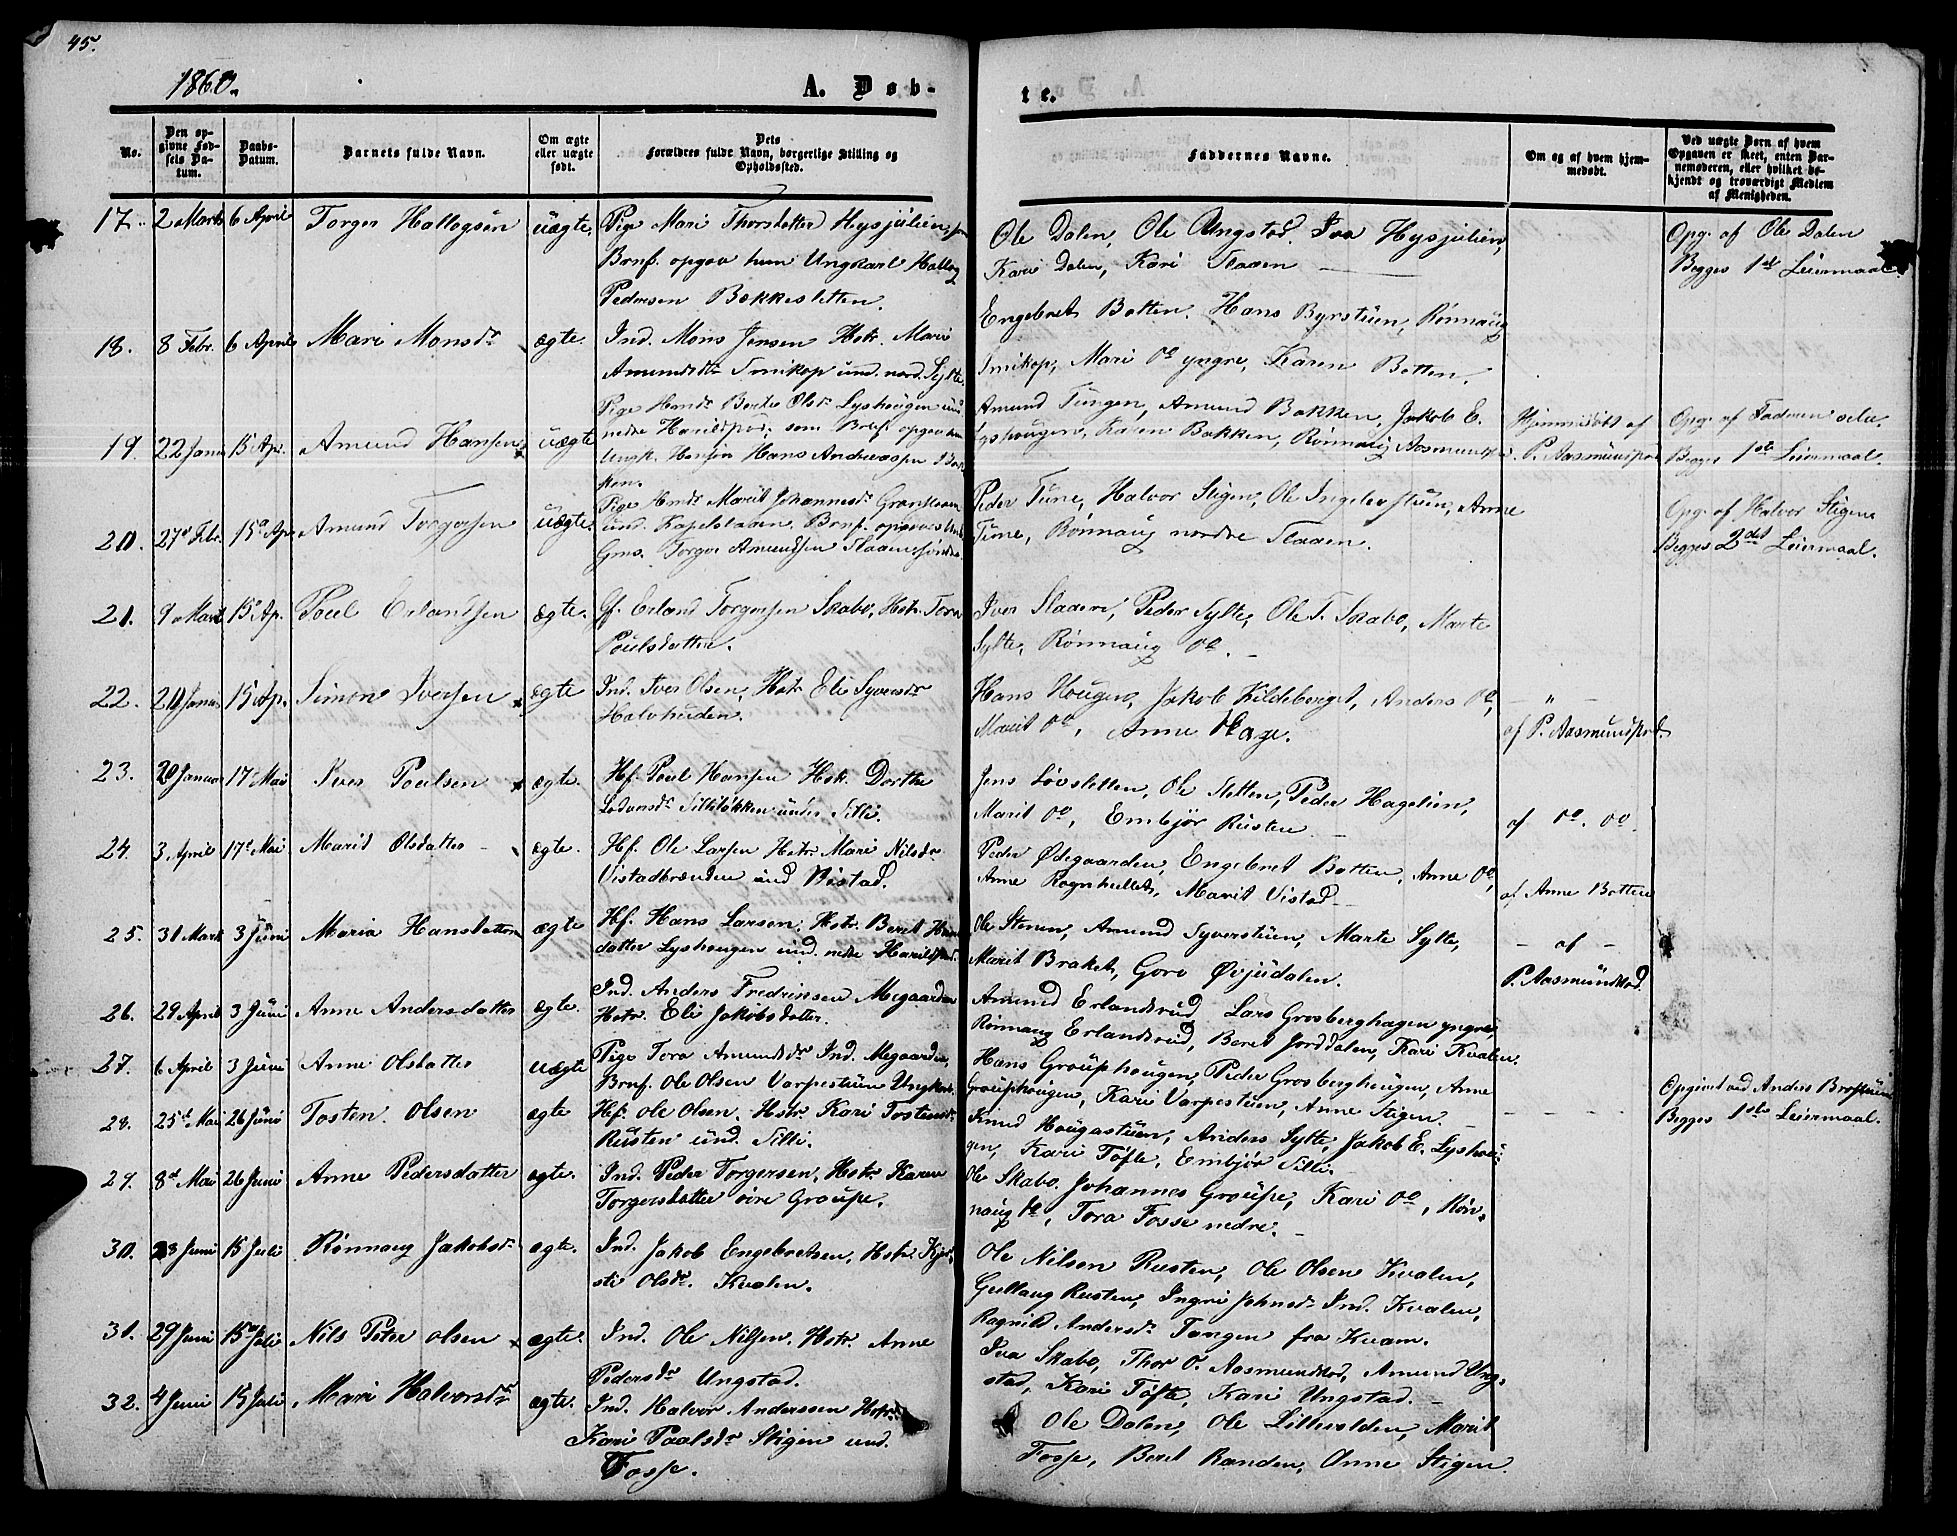 45.
1860.
A. Døb-
te.
No.
Den op-
givne Fød-
sels Da-
tum.
Daabs-
Datum.
Barnets fulde Navn.
Om ægte
eller uægte
født.
Dets
Forældres fulde Navn, borgerlige Stilling og
Opholdssted.
Faddernes Navne.
Om og af hvem hjem-
medøbt.
Ved uægte Børn af hvem
Opgaven er skeet, enten Bar-
nemoderen, eller hvilket be-
kjendt og troværdigt Medlem
af Menigheden.
17. 2 Marts 6 April Torger Hallogsen uægte. Pige Mari Thorsdatter Hysjulien,
Brnf. opgav hun Ungkarl Hallog
Pedersen Bakkesletten.
Ole Dalen, Ole Ungstad, Iva Hysjulien,
Kari Dalen, Kari Slaaen
Opg. af Ole Dalen
Begges 1st Leiermaal.
18. 8 Febr. 6 April Mari Monsdr ægte. Ind. Mons Jensen Hstr. Mari
Amundsdr und. nord. Sylte.
Engebret Botten, Hans Byrstuen, Rønnaug
Mari do yngre, Karen Botten.
19. 22 Janu 15 Ap. Amund Hansen uægte Pige Berte Olsdr Lyshougen und
nedre Harildstad, som Brnf. opgav hun
Ungk. Hans Andreassen Bak-
ken.
Amund Tungen, Amund Bakken, Jakob E.
Lyshougen, Karen Bakken, Rønnaug Aasmundstad
Hjemmedøbt af
P. Aasmundstad
Opg. af Faderen selv.
Begges 1ste Leiermaal.
20. 27d Febr. 15d Ap. Amund Torgersen uægte. Pige Marit Johannesdr
und. Brnf. opgaves
Gms. Torger Amundsen
Peder Tune, Halvor Stigen, Ole Anne
Tune, Rønnaug nordre Slaaen.
Opg. af Halvor Stigen
Begges 2det Leiermaal.
21. 9 Marts 15 Ap. Poul Erlandsen ægte. Gf. Erland Torgersen Skabo, Hstr. Tora
Poulsdatter.
Iver Slaaen, Peder Sylte, Ole T. Skabo, Marte
Sylte, Rønnaug do.
22. 20 Janu 15 Ap. Simon Iversen ægte Ind. Iver Olsen, Hstr Eli Syversdr
Hans Hougen, Jakob Kildeberget, Anders do,
Marit do, Anne Hage.
- " -
af P. Aasmundstad
23. 20 Januar 17 Mai Iver Poulsen ægte. Hf. Poul Hansen Hstr. Dorthe
under Silli.
Jens Løvsletten, Ole Sletten, Peder Hagelien,
Marit do, Embjør Rusten
af do. do.
24. 3 April 17d Mai Marit Olsdatter ægte. Hf. Ole Larsen Hstr. Mari Nilsdr
Vistadbrænden und Vistad.
Peder Ødegaarden, Engebret Botten, Anne do,
Anne Marit Vistad
af Anne Botten
25. 31 Marts 3 Juni Maria Hansdatter ægte Hf. Hans Larsen, Hstr. Beret
datter Lyshougen und. nedre Harildstad.
Ole Stenen, Amund Syverstuen, Marte Sylte,
Marit Braket, Goro Øvjudalen.
- af -
P. Aasmundstad
26. 29 April 3 Juni Anne Andersdatter ægte. Ind. Anders Fredriksen Megaarden
Hstr. Eli Jakobsdatter.
Amund Erlandsrud, Lars Grosberghagen yngre,
Rønnaug Erlandsrud, Beret Jorddalen, Kari Kvalen.
27. 6 April 3 Juni Anne Olsdatter uægte Pige Tora Amundsdr Ind. Megaarden,
Brnf. Ole Olsen Varpestuen Ungkarl
Hans Grouphougen, Peder Grosberghougen, Anne
Grouphougen, Kari Varpestuen, Anne Stigen.
Opgivet ved Anders
Begges 1ste Leiermaal.
28. 25d Mai 26 Juni Tosten Olsen ægte Hf. Ole Olsen. Hstr. Kari Tostensdr
Rusten und. Silli.
Knud Hougastuen, Anders Sylte, Jakob E. Lyshou-
gen, Kari Tofte, Embjør Silli.
29. 8d Mai 26 Juni Anne Pedersdatter ægte. Ind. Peder Torgersen, Hstr. Karen
Torgersdatter øvre Groupe.
Ole Skabo. Johannes Groupe, Kari do, Røn-
naug do, Tora Fosse nedre.
30. 23 Juni 15 Juli Rønnaug Jakobsdr ægte. Ind. Jakob Engebretsen, Hstr. Kjer-
sti Olsdr. Kvalen.
Ole Nilsen Rusten, Ole Olsen Kvalen,
Gullaug Rusten, Ingri Johnsdr Ind. Kvalen,
Ragnild Andersdr Tangen fra Kvam.
31. 29 Juni 15 Juli Nils Peter Olsen ægte. Ind. Ole Nilsen. Hstr. Anne
Pedersdr Ungstad.
Iva Skabo, Thor O. Aasmundstad, Amund Ung-
stad, Kari Tofte, Kari Ungstad.
32. 4 Juni 15 Juli Mari Halvorsdr ægte. Ind. Halvor Anderssen Hstr.
Kari Paalsdr Stigen und.
Fosse.
Ole Dalen, Ole Lillevolden, Marit
Fosse, Beret Randen, Anne Stigen.